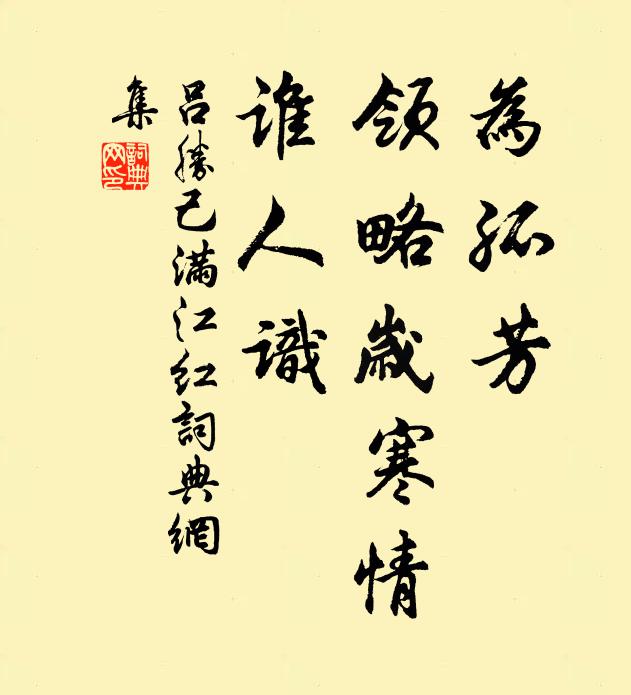 為孤芳
領略歲寒情
誰人識
呂勝己滿江紅詞典網
集
詞典
网印